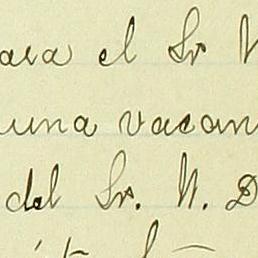 para el Sr N
una vacan
del Sr. N. D